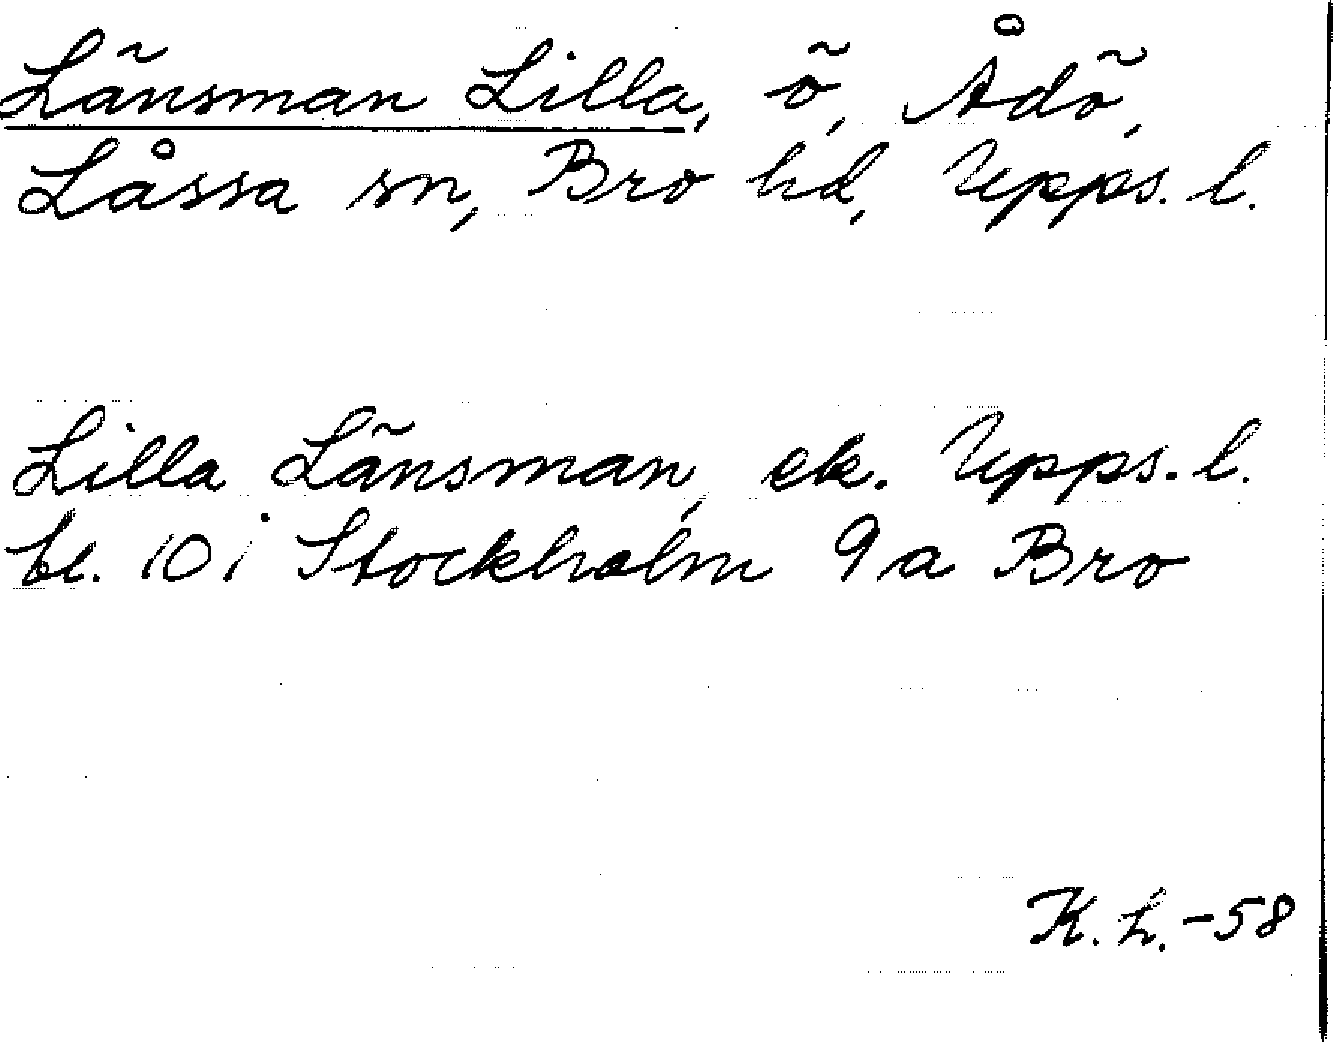 Länsman Lilla, ö, Ådö,
Låssa sn, Bro hd, Upps. l.
Lilla Länsman, ek. Upps. l.
bl. 101 Stockholm 9a Bro
K. L. -58